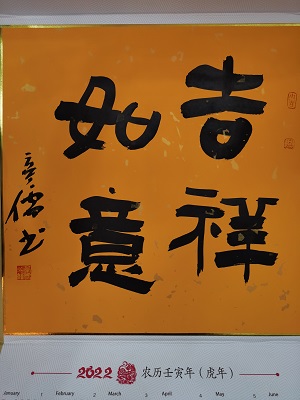 吉祥
如意
意儒书
2022 农历壬寅年(虎年)
January 1 February 2 March 3 April 4 May 5 June